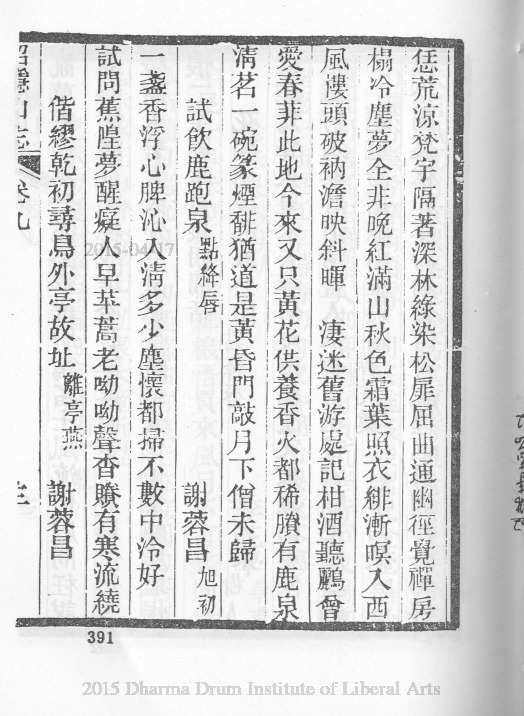 恁荒涼梵宇隔著深林綠染松扉屈曲通幽徑覓禪房
榻冷塵夢全非晩紅滿山秋色霜葉照衣緋漸暝入西
風僂頭破衲澹映斜暉 淒迷舊游處記柑酒聽鸝曾
愛春菲此地今來又只黃花供養香火都稀賸有鹿泉
淸茗一碗篆煙馡猶道是黃昏門敲月下僧未歸
試飮鹿跑泉 點絳唇 謝蓉昌 旭初
一盞香浮心脾沁入淸多少塵懷都掃不數中泠好
試問蕉隍夢醒癡人早苹蒿老呦呦聲杳賸有寒流繞
偕繆乾初尋鳥外亭故址 離亭燕 謝蓉昌
招隱山志 卷九
391
2015-04-17
2015 Dharma Drum Institute of Liberal Arts